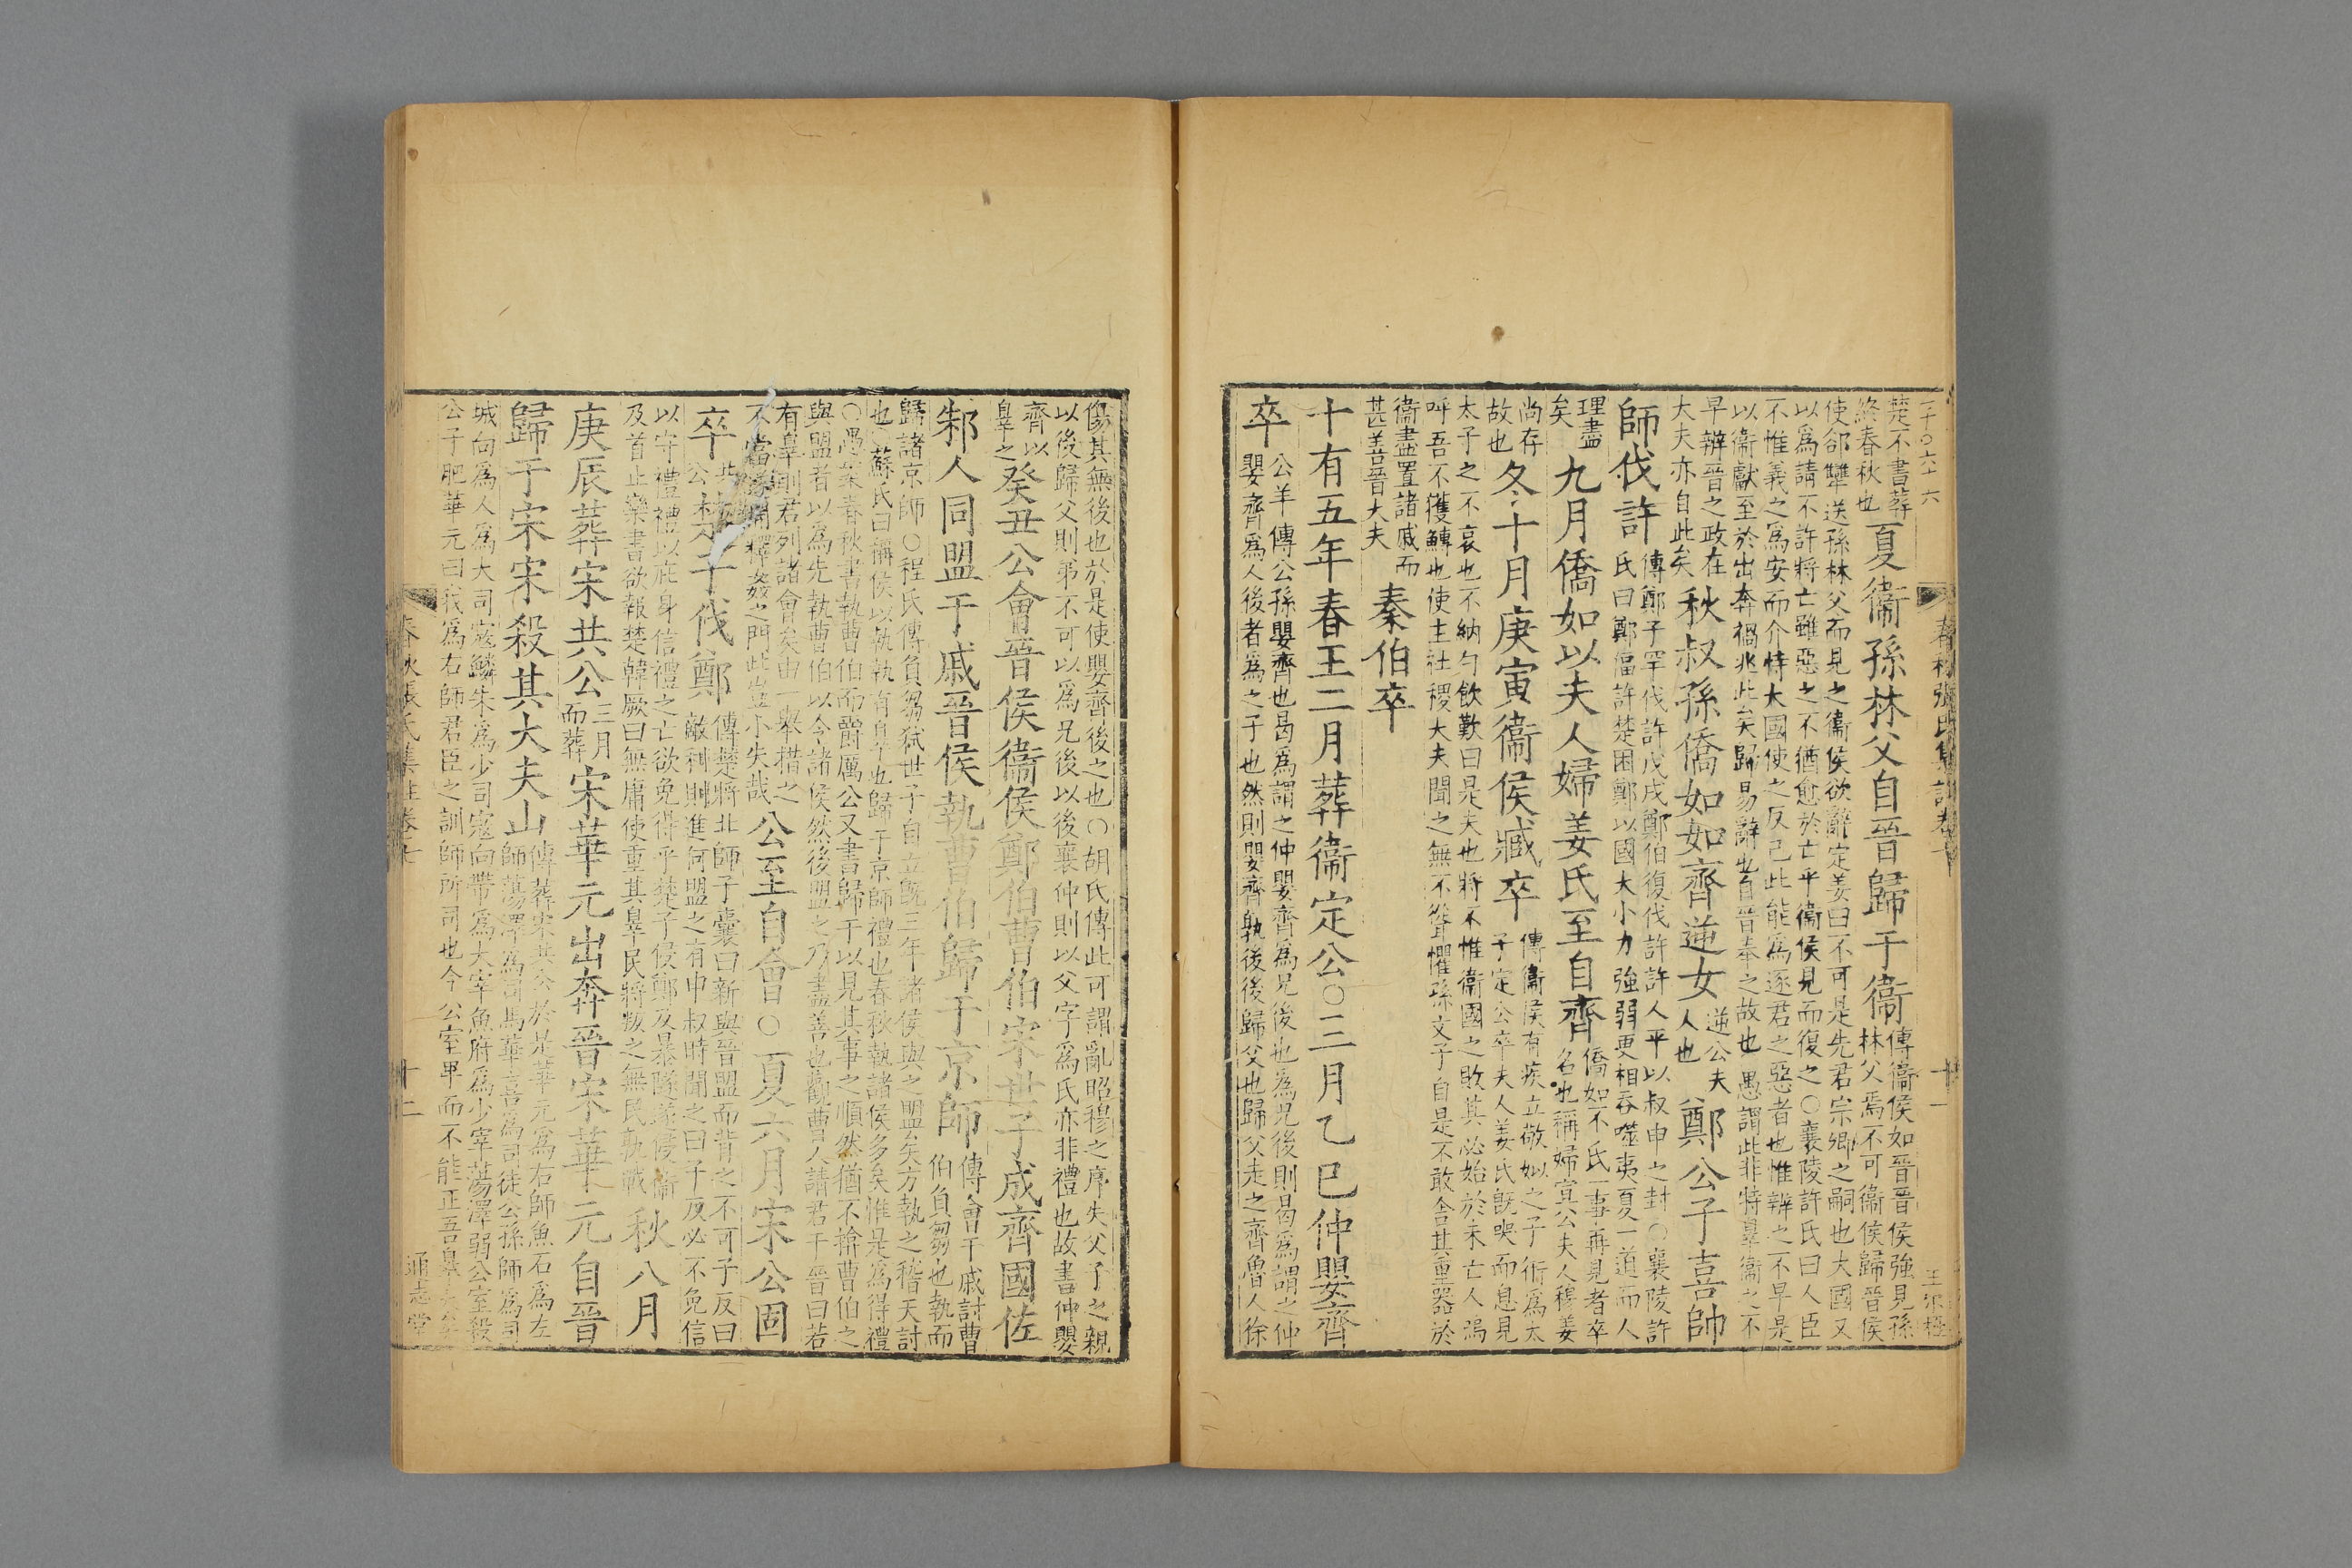 楚不書葬
終春秋也
夏衞孫林父自晉歸于衞
傳衞侯如晉晉侯強見孫
林父焉不可衞侯歸晉侯
使郤犫送孫林父而見之衞侯欲辭定姜曰不可是先君宗卿之嗣也大國又
以爲請不許將亡雖惡之不猶愈於亡乎衞侯見而復之○襄陵許氏曰人臣
不惟義之爲安而介恃大國使之反己此能爲逐君之惡者也惟辨之不早是
以衞獻至於出奔禍兆此矣歸易辭也自晉奉之故也愚謂此非特辠衞之不
早辨晉之政在
大夫亦自此矣
秋叔孫僑如如齊逆女
逆公夫
人也
鄭公子喜帥
師伐許
傳鄭子罕伐許戊戌鄭伯復伐許許人平以叔申之封○襄陵許
氏曰鄭偪許楚困鄭以國大小力強弱更相吞噬夷夏一道而人
理盡
矣
九月僑如以夫人婦姜氏至自齊
僑如不氏一事再見者卒
名也稱婦宣公夫人穆姜
尚存
故也
冬十月庚寅衞侯臧卒
傳衞侯有疾立敬姒之子衎爲太
子定公卒夫人姜氏旣哭而息見
太子之不哀也不納勺飲歎曰是夫也將不惟衞國之敗其必始於未亡人烏
呼吾不獲鱄也使主社稷大夫聞之無不聳懼孫文子自是不敢舍其重器於
衞盡置諸戚而
甚善晉大夫
秦伯卒
十有五年春王二月葬衞定公○三月乙巳仲嬰齊
卒
公羊傳公孫嬰齊也曷爲謂之仲嬰齊爲兄後也爲兄後則曷爲謂之仲
嬰齊爲人後者爲之子也然則嬰齊孰後後歸父也歸父走之齊魯人徐
傷其無後也於是使嬰齊後之也○胡氏傳此可謂亂昭穆之序失父子之親
以後歸父則弟不可以爲兄後以後襄仲則以父字爲氏亦非禮也故書仲嬰
齊以
辠之
癸丑公會晉侯衞侯鄭伯曹伯宋世子成齊國佐
邾人同盟于戚晉侯執曹伯歸于京師
傳會于戚討曹
伯負芻也執而
歸諸京師○程氏傳負芻弒世子自立旣三年諸侯與之盟矣方執之稽天討
也○蘇氏曰稱侯以執執有辠也歸于京師禮也春秋執諸侯多矣惟是爲得禮
○愚案春秋書執曹伯而爵厲公又書歸于以見其事之順然猶不揜曹伯之
與盟者以爲先執曹伯以令諸侯然後盟之乃盡善也觀曹人請君于晉曰若
有辠則君列諸會矣由一舉措之
不當遂開釋姦之門此豈小失哉
公至自會○夏六月宋公固
卒
共
公
楚子伐鄭
傳楚將北師子囊曰新與晉盟而背之不可子反曰
敵利則進何盟之有申叔時聞之曰子反必不免信
以守禮禮以庇身信禮之亡欲免得乎楚子侵鄭及暴隧遂侵衞
及首止欒書欲報楚韓厥曰無庸使重其辠民將叛之無民孰戰
秋八月
庚辰葬宋共公
三月
而葬
宋華元出奔晉宋華元自晉
歸于宋宋殺其大夫山
傳葬宋共公於是華元爲右師魚石爲左
師蕩澤爲司馬華喜爲司徒公孫師爲司
城向爲人爲大司寇鱗朱爲少司寇向帶爲大宰魚府爲少宰蕩澤弱公室殺
公子肥華元曰我爲右師君臣之訓師所司也今公室卑而不能正吾辠大矣
春秋張氏集註卷七
十二
通志堂